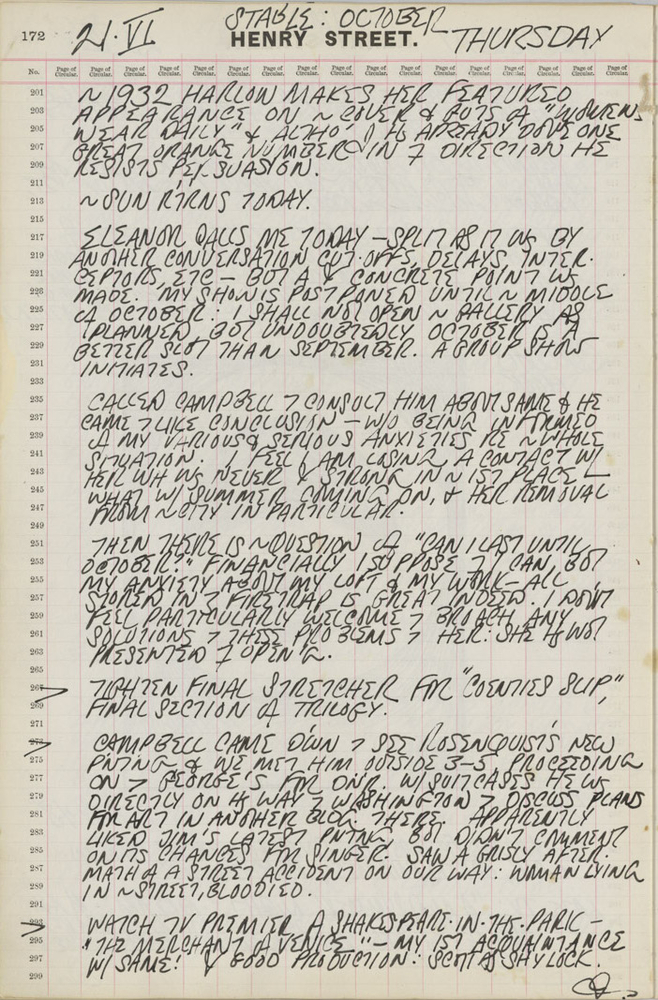 STABLE: OCTOBER
172 21·VI HENRY STREET. THURSDAY
No. Page of Circular. Page of Circular. Page of Circular. Page of Circular. Page of Circular. Page of Circular. Page of Circular. Page of Circular. Page of Circular. Page of Circular. Page of Circular. Page of Circular. Page of Circular. Page of Circular.
201 ~ 1932 HARLOW MAKES HER FEATURED
203 APPEARANCE ON ~ COVER & GUTS A "WOMENS
205 WEAR DAILY" & ALTHO' I HS ALREADY DONE ONE
207 GREAT ORANGE NUMBER IN 7 DIRECTION HE
209 RESISTS PERSUASION.
211
213 ~ SUN RTRNS TODAY.
215
217 ELEANOR CALLS ME TODAY – SPLIT AS IT WS BY
219 ANOTHER CONVERSATION CUT-OFFS, DELAYS, INTER-
221 CEPTORS, ETC – BUT A CONCRETE POINT WS
223 MADE. MY SHOW IS POSTPONED UNTIL ~ MIDDLE
225 A OCTOBER: I SHALL NOT OPEN ~ GALLERY AS
227 PLANNED, BUT UNDOUBTEDLY OCTOBER IS A
229 BETTER SLOT THAN SEPTEMBER. A GROUP SHOW
231 INITIATES.
233
235 CALLED CAMPBELL 7 CONSULT HIM ABOUT SAME & HE
237 CAME 7 LIKE CONCLUSION – W/O BEING INFORMED
239 A MY VARIOUS & SERIOUS ANXIETIES RE ~ WHOLE
241 SITUATION. I FEEL I AM LOSING A CONTACT W/
243 HER WH WS NEVER STRONG IN ~ 1ST PLACE –
245 WHAT W/ SUMMER COMING ON, & HER REMOVAL
247 FROM ~ CITY IN PARTICULAR.
249
251 THEN THERE IS ~ QUESTION A "CAN I LAST UNTIL
253 OCTOBER?" FINANCIALLY I SUPPOSE I CAN, BUT
255 MY ANXIETY ABOUT MY LOFT & MY WORK – ALL
257 STORED IN FIRETRAP IS GREAT INDEED. I DON'T
259 FEEL PARTICULARLY WELCOME 7 BROACH ANY
261 SOLUTIONS 7 THESE PROBLEMS 7 HER: SHE HS NOT
263 PRESENTED 7 OPEN'G.
265
267 TIGHTEN FINAL STRETCHER FOR "COENTIES SLIP,"
269 FINAL SECTION A TRILOGY.
271
273 CAMPBELL CAME DOWN 7 SEE ROSENQUIST'S NEW
275 PNTING & WE MET HIM OUTSIDE 3-5, PROCEEDING
277 ON 7 GEORGE'S FOR DNR. W/ SUITCASES HE WS
279 DIRECTLY ON HS WAY 7 WASHINGTON 7 DISCUSS PLANS
281 FOR ART IN ANOTHER BLDG THERE. APPARENTLY
283 LIKED JIM'S LATEST PNTNG BUT DIDN'T COMMENT
285 ON ITS CHANCES FOR SINGER. SAW A GRISLY AFTER-
287 MATH A A STREET ACCIDENT ON OUR WAY: WOMAN LYING
289 IN ~ STREET, BLOODIED.
291
293 WATCH TV PREMIER A SHAKESPEARE-IN-THE-PARK –
295 "THE MERCHANT A VENICE" – MY 1ST ACQUAINTANCE
297 W/ SAME! GOOD PRODUCTION: SCOTT AS SHYLOCK.
299